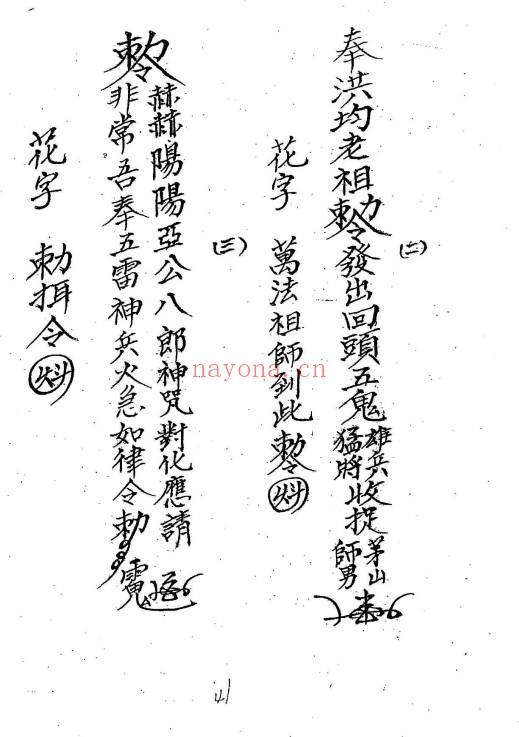 (二)
奉洪均老祖勅令發出回頭五鬼雄兵猛將收捉茅山師男
花字 萬法祖師到此勅令
(三)
赫赫陽陽亞公八郎神咒對化應請
勅令非常吾奉五雷神兵火急如律令勅
花字 勅揖令
nayona.cn